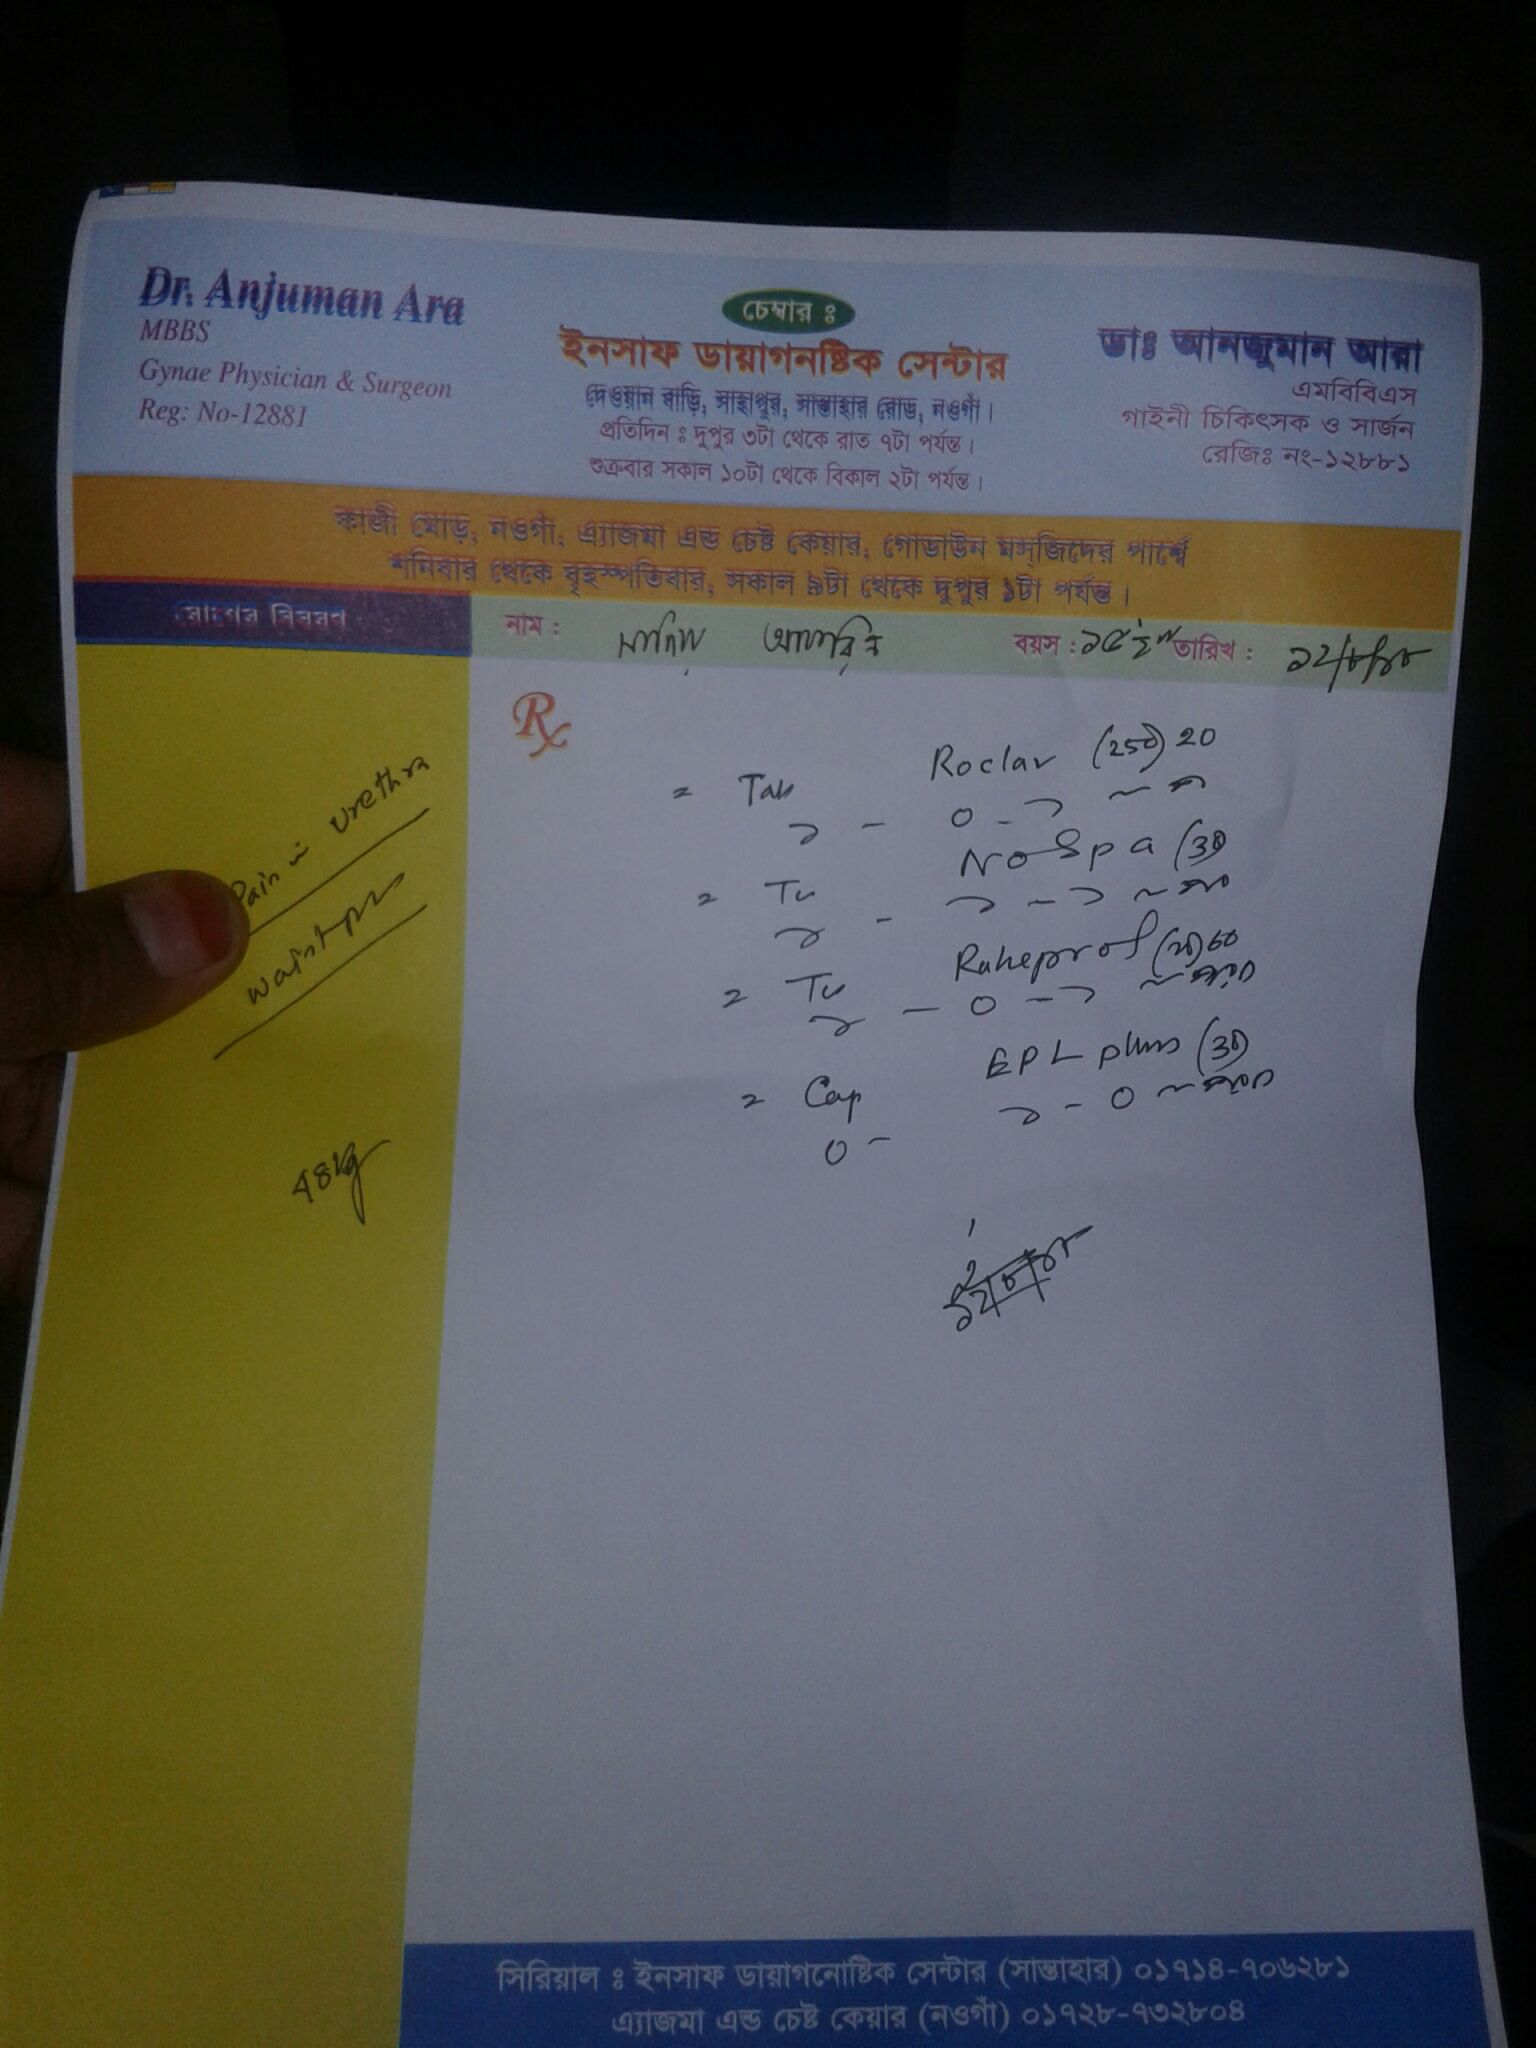 Dr. Anjuman Ara
MBBS
Gynae Physician & Surgeon
Reg: No-12881
চেম্বার ঃ
ইনসাফ ডায়াগনষ্টিক সেন্টার
দেওয়ান বাড়ি, সাহাপুর, সান্তাহার রোড, নওগাঁ।
প্রতিদিন ঃ দুপুর ৩টা থেকে রাত ৭টা পর্যন্ত।
শুক্রবার সকাল ১০টা থেকে বিকাল ২টা পর্যন্ত।
ডাঃ আনজুমান আরা
এমবিবিএস
গাইনী চিকিৎসক ও সার্জন
রেজিঃ নং-১২৮৮১
কাজী মোড়, নওগাঁ, এ্যাজমা এন্ড চেষ্ট কেয়ার, গোডাউন মস্জিদের পার্শ্বে
শনিবার থেকে বৃহস্পতিবার, সকাল ৯টা থেকে দুপুর ১টা পর্যন্ত।
রোগের বিবরণ
নাম : বয়স : তারিখ :
Pain in Urethra
Waist pain
48kg
Rx
Tab Roclav (250) 20
১ - 0 - ১
No Spa (30)
১ - ১ - ১
(20) 60
১ - 0 - ১
Cap EPL plus (30)
0 - ১ - 0
সিরিয়াল ঃ ইনসাফ ডায়াগনোষ্টিক সেন্টার (সান্তাহার) ০১৭১৪-৭০৬২৮১
এ্যাজমা এন্ড চেষ্ট কেয়ার (নওগাঁ) ০১৭২৮-৭৩২৮০৪